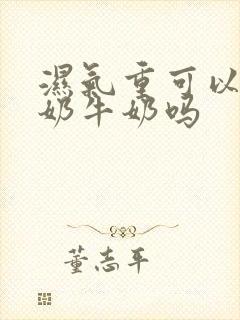 濕氣重可以
奶牛奶吗
董志平